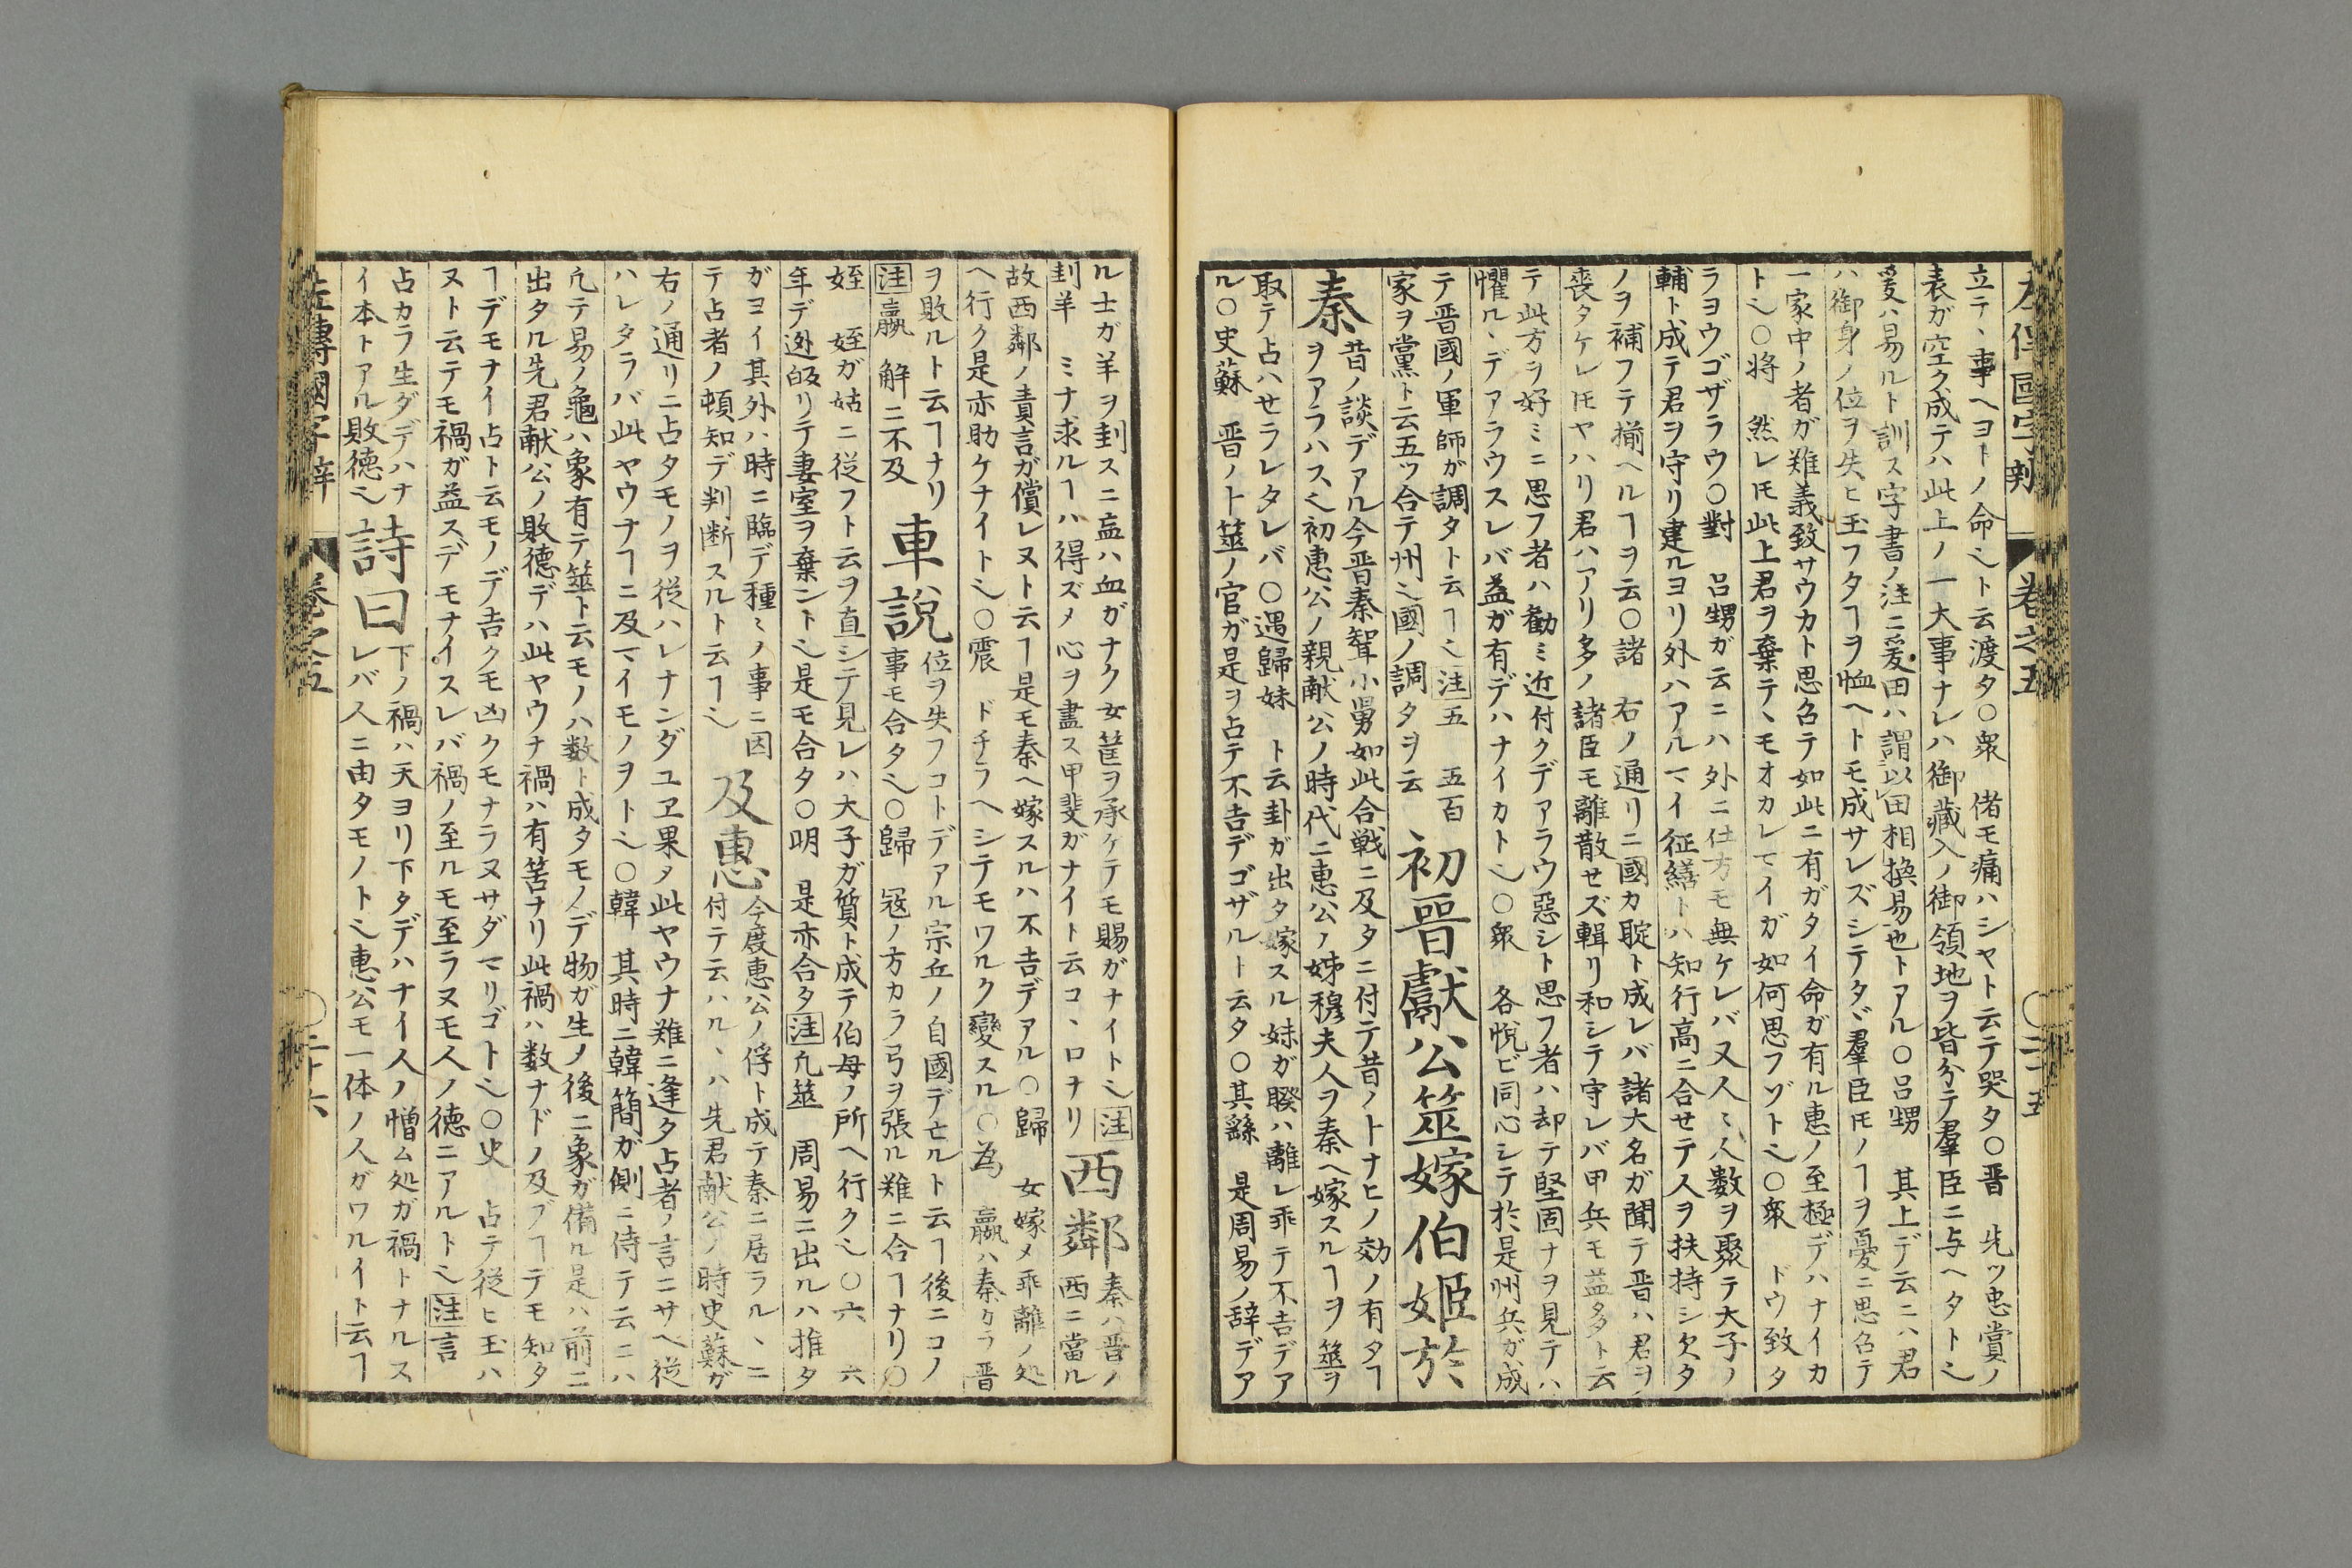 左傳國字辯 巻之五 〇三十五
立テヽ事ヘヨトノ命〻ト云渡タ〇衆 偖モ痛ハシヤト云テ哭タ〇晋 先ツ忠賞ノ
表ガ空ク成テハ此上ノ一大事ナレハ御藏入ノ御領地ヲ皆分テ羣臣ニ与ヘタト〻
爰ハ易ルト訓ス字書ノ注ニ爰田ハ謂以田相換易也トアル〇呂甥 其上デ云ニハ君
ハ御身ノ位ヲ失ヒ玉フタヿヲ恤ヘトモ成サレズシテタヾ羣臣𪜈ノヿヲ憂ニ思召テ
一家中ノ者ガ難義致サウカト思召テ如此ニ有ガタイ命ガ有ル恵ノ至極デハナイカ
ト〻〇將 然レ𪜈此上君ヲ棄テヽモオカレマイガ如何思フゾト〻〇衆 ドウ致タ
ラヨウゴザラウ〇對 呂甥ガ云ニハ外ニ仕方モ無ケレバ又人〻人数ヲ聚テ大子ノ
輔ト成テ君ヲ守リ建ルヨリ外ハアルマイ征繕トハ知行高ニ合せテ人ヲ扶持シ欠タ
ノヲ補フテ揃ヘルヿヲ云〇諸 右ノ通リニ國カ聢ト成レバ諸大名ガ聞テ晋ハ君ヲ
喪タケレ𪜈ヤハリ君ハアリ多ノ諸臣モ離散せズ輯リ和シテ守レバ甲兵モ益多ト云
テ此方ヲ好ミニ思フ者ハ勸ミ近付クデアラウ惡シト思フ者ハ却テ堅固ナヲ見テハ
懼ルヽデアラウスレバ益ガ有デハナイカト〻〇衆 各悦ビ同心シテ於是州兵ガ成
テ晋國ノ軍師ガ調タト云ヿ〻注五 五百
家ヲ黨ト云五ツ合テ州〻國ノ調タヲ云 初晋獻公筮嫁伯姬於
秦 昔ノ談デアル今晋秦聟小舅如此合戰ニ及タニ付テ昔ノトナヒノ効ノ有タヿ
ヲアラハス〻初惠公ノ親献公ノ時代ニ惠公ノ姊穆夫人ヲ秦ヘ嫁スルヿヲ筮ヲ
取テ占ハせラレタレバ〇遇歸妹 ト云卦ガ出タ嫁スル妹ガ睽ハ離レ乖テ不吉デア
ル〇史蘇 晋ノト筮ノ官ガ是ヲ占テ不吉デゴザルト云タ〇其繇 是周易ノ辞デア
ル士ガ羊ヲ刲スニ衁ハ血ガナク女筐ヲ承ケテモ賜ガナイト〻注
刲羊 ミナ求ルヿハ得ズメ心ヲ盡ス甲斐ガナイト云コヽロナリ 西鄰 秦ハ晋ノ
西ニ當ル
故西鄰ノ責言ガ償レヌト云ヿ是モ秦ヘ嫁スルハ不吉デアル〇歸 女嫁メ乖離ノ処
ヘ行ク是亦助ケナイト〻〇震 ドチラヘシテモワルク變スル〇為 嬴ハ秦カラ晋
ヲ敗ルト云ヿナリ
注嬴 解ニ不及 車說 位ヲ失フコトデアル宗丘ノ自國デ亡ルト云ヿ後ニコノ
事モ合タ〻〇歸 冦ノ方カラ弓ヲ張ル難ニ合ヿナリ〇
姪 姪ガ姑ニ従フト云ヲ直シテ見レハ大子ガ質ト成テ伯母ノ所ヘ行ク〻〇六 六
年デ逊皈リテ妻室ヲ棄ント〻是モ合タ〇明 是亦合タ注凢筮 周易ニ出ルハ推タ
ガヨイ其外ハ時ニ臨デ種〻ノ事ニ因
テ占者ノ頓知デ判断スルト云ヿ〻 及惠 今度惠公ノ俘ト成テ秦ニ居ラルヽニ
付テ云ハルヽハ先君献公ノ時史蘇ガ
右ノ通リニ占タモノヲ従ハレナンダユヱ果タ此ヤウナ難ニ逢タ占者ノ言ニサヘ従
ハレタラバ此ヤウナヿニ及マイモノヲト〻〇韓 其時ニ韓簡ガ側ニ侍テ云ニハ
凢テ易ノ龜ハ象有テ筮ト云モノハ数ト成タモノデ物ガ生ノ後ニ象ガ備ル是ハ前ニ
出タル先君献公ノ敗徳デハ此ヤウナ禍ハ有筈ナリ此禍ハ数ナドノ及ブヿデモ知タ
ヿデモナイ占ト云モノデ吉クモ凶クモナラヌサダマリゴト〻〇史 占テ従ヒ玉ハ
ヌト云テモ禍ガ益スデモナイスレバ禍ノ至ルモ至ラヌモ人ノ徳ニアルト〻注言
占カラ生ダデハナ
イ本トアル敗徳〻 詩曰 下ノ禍ハ天ヨリ下タデハナイ人ノ憎ム処ガ禍トナルス
レバ人ニ由タモノト〻惠公モ一体ノ人ガワルイト云ヿ
左傳國字辯 巻之五 〇三十六